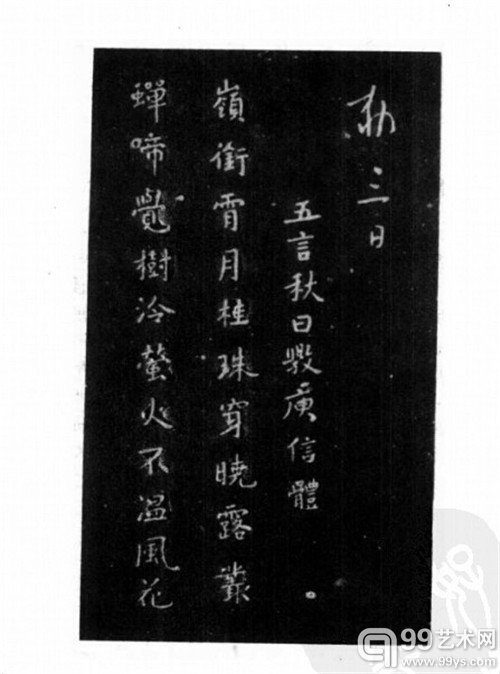 勅三日
五言秋日斆庾信體
嶺銜霄月桂珠穿曉露叢
蟬啼覺樹冷螢火不温風花
99艺术网
www.99ys.com